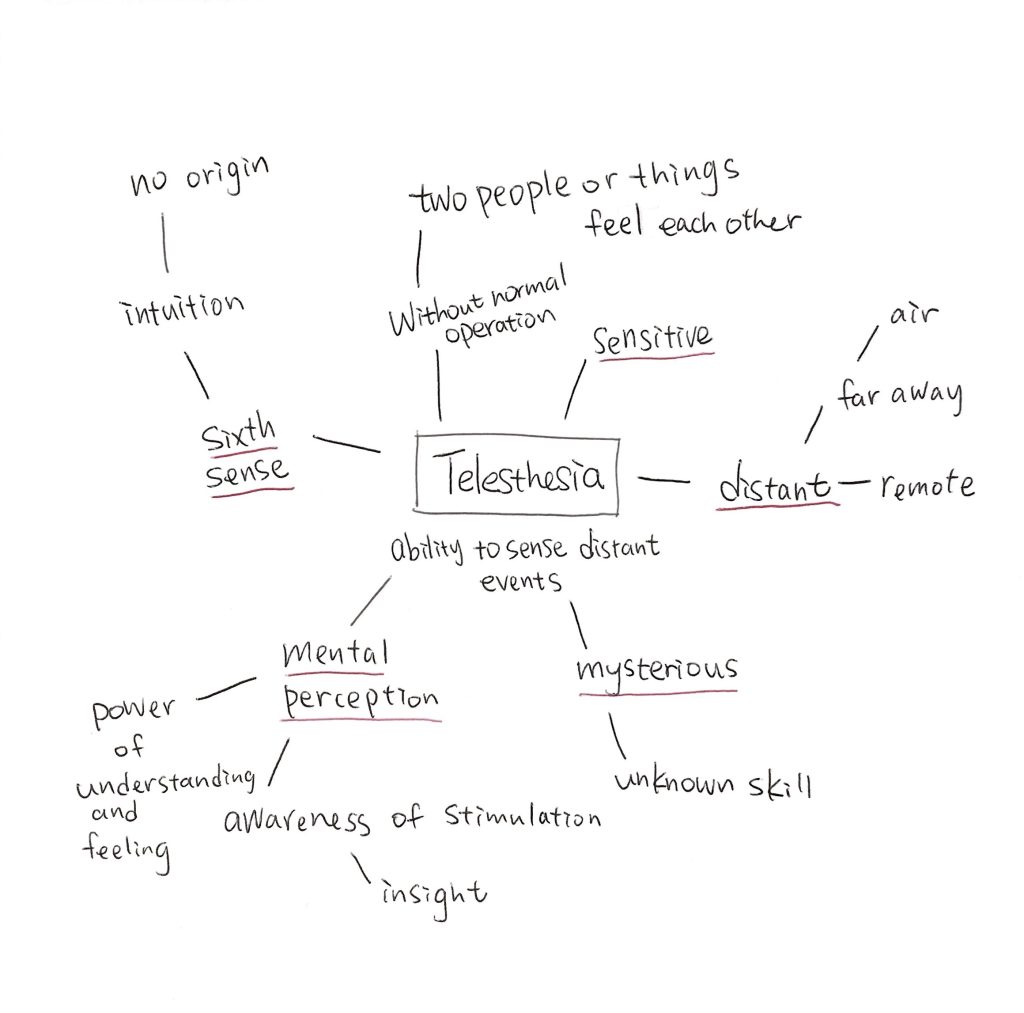 no origin
two people or things
feel each other
intuition
Without normal
operation
Sensitive
air
far away
Sixth
sense
Telesthesia
distant
remote
ability to sense distant
events
mental
perception
mysterious
power
of
understanding
and
feeling
unknown skill
awareness of stimulation
insight